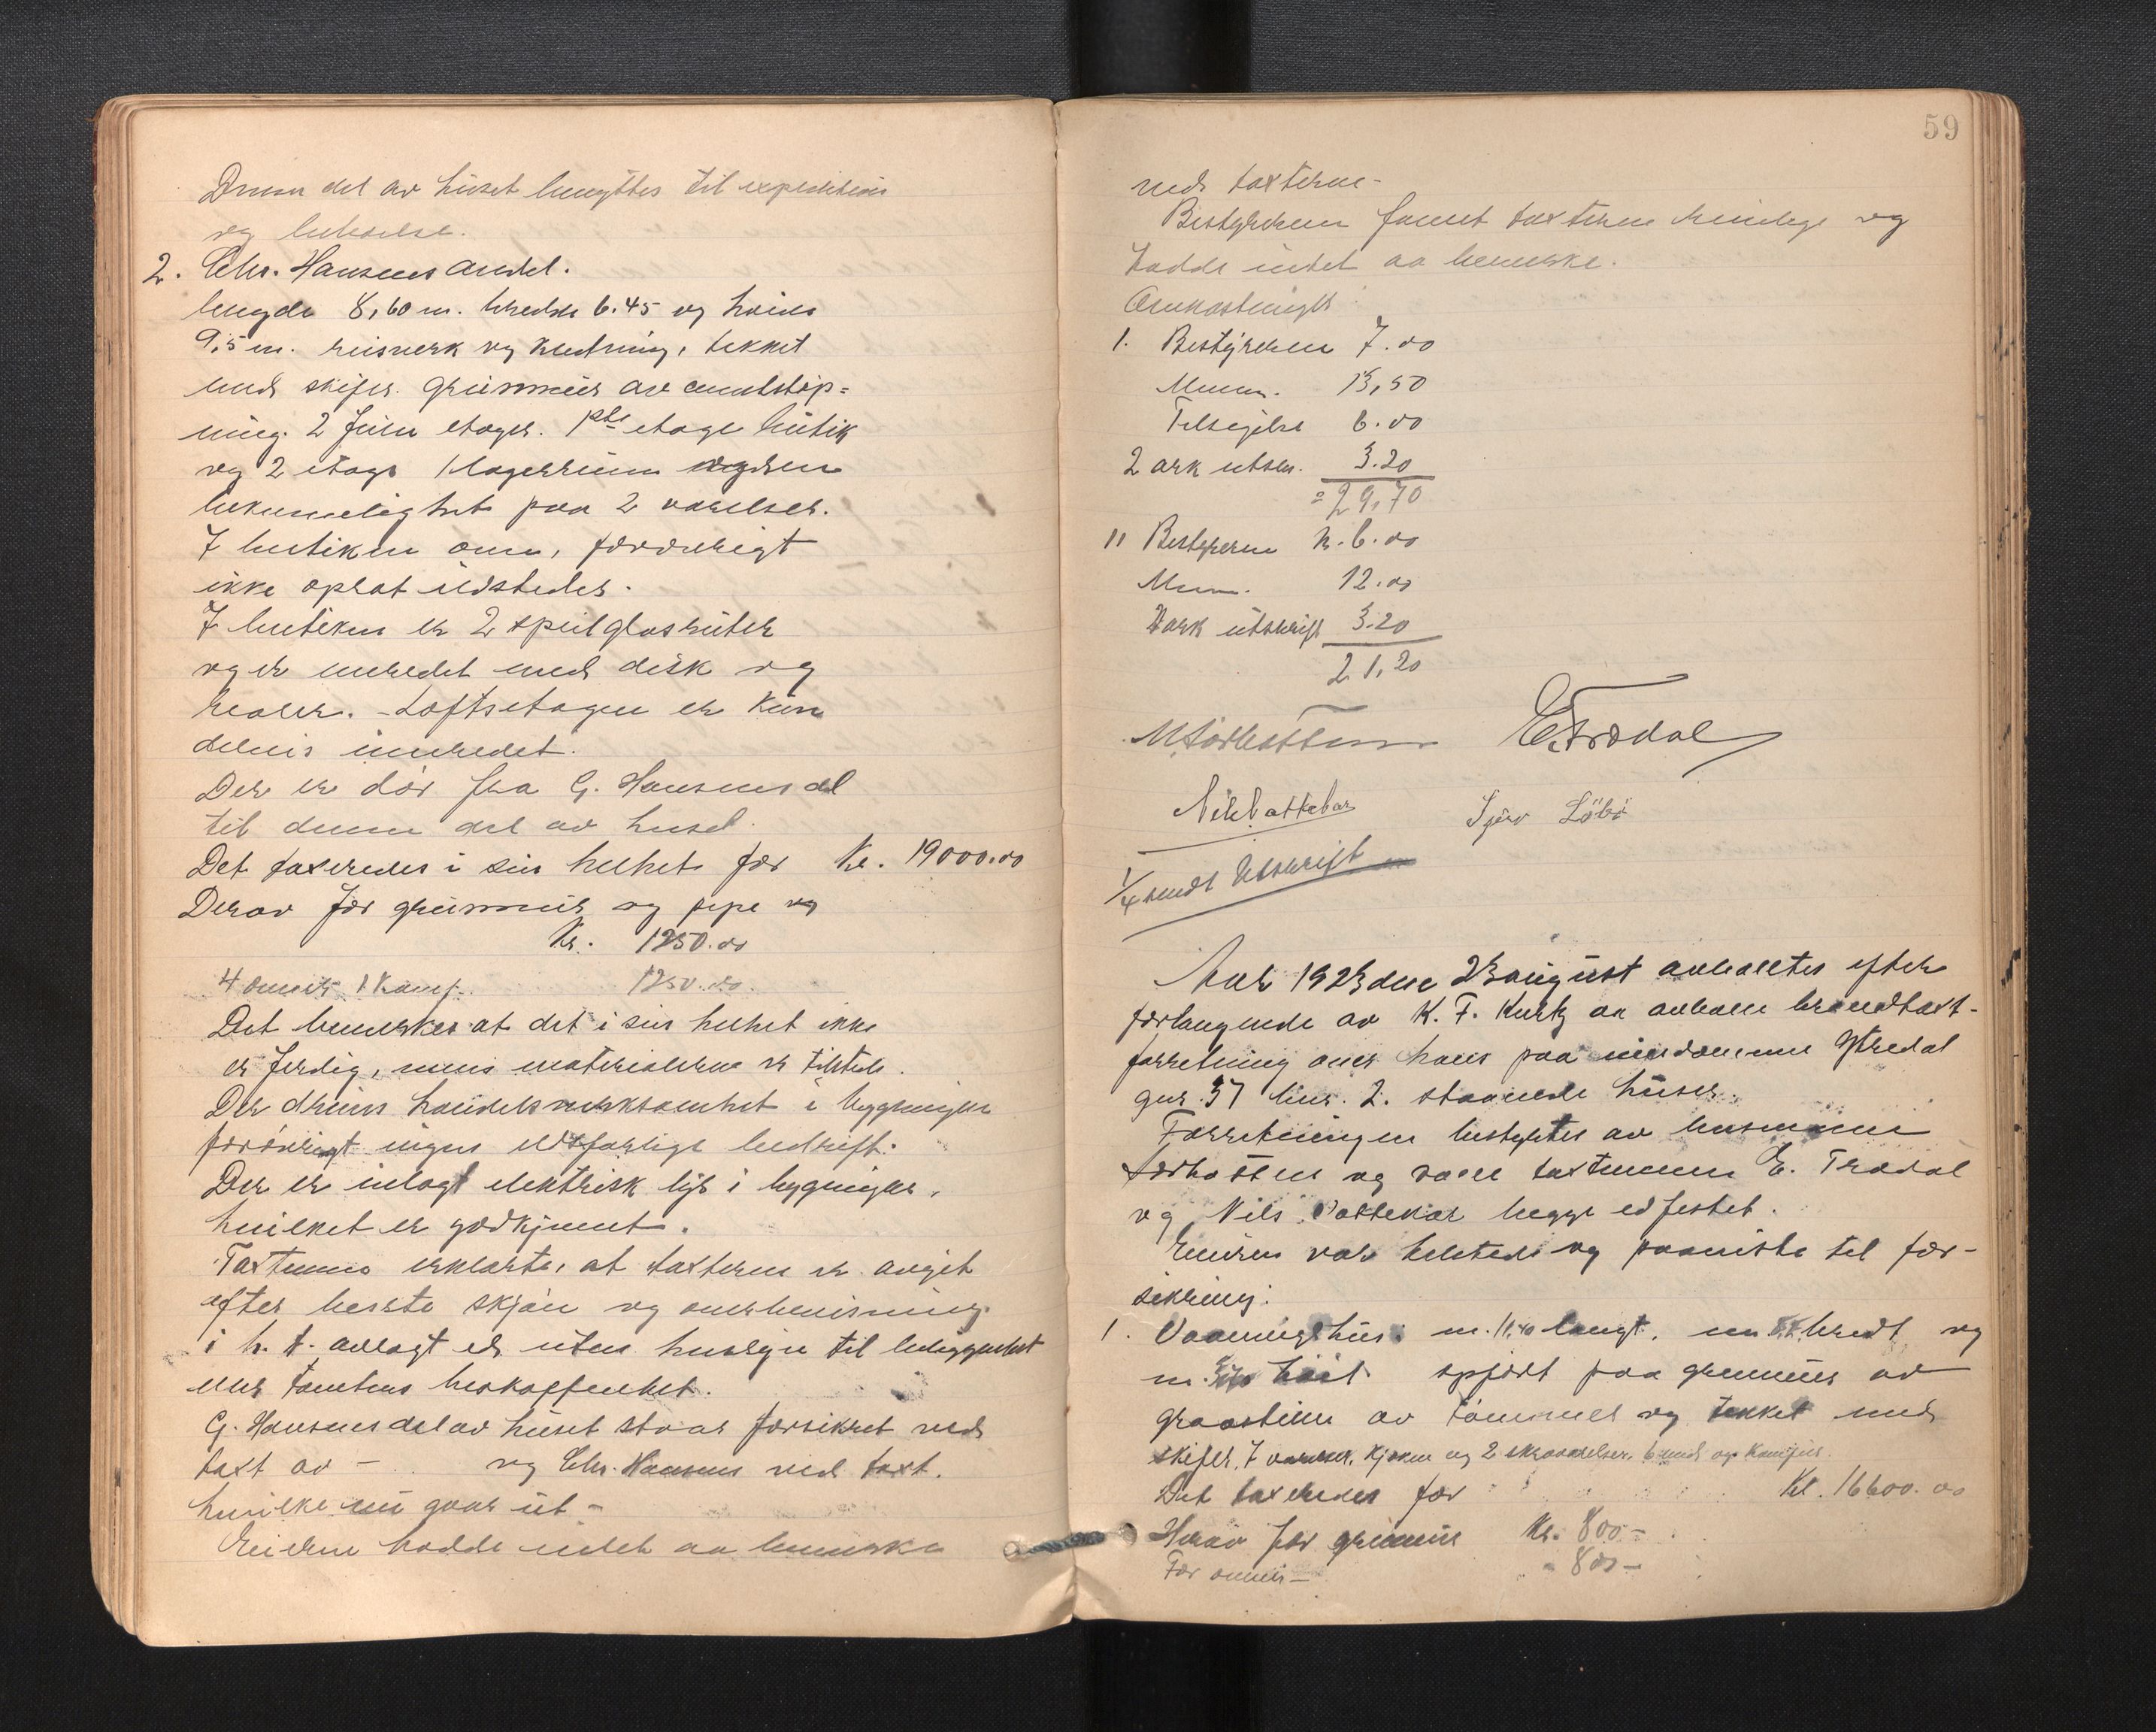 Denne del av huset benyttes til expedition
og beboelse.
2. Chr. Hansens andel.
lengde 8,60 m. bredde 6.45 og høide
9,5 m. reisverk og kledning, tekket
med skifer. Grunmur av
ning. 2 fulde etager. 1ste etage butik
og 2 etage 1 lagerrum
bekvemelighet paa 2 værelser.
I butiken ovn, forøvrigt
ikke oplat ildsteder.
I butiken er 2 speilglasruter
og er inredet med disk og
reoler. - Loftsetagen er kun
delvis inredet.
Der er dør fra G. Hansens del
til denne del av huset.
Det taxeredes i sin helhet for Kr. 19000.00
Derav for grunmur og pipe og
Kr. 1250.00
4 ovner 1 Kamf. 1250.00.
Det bemerkes at det i sin helhet ikke
er ferdig, mens materialerne er tilstede.
Der drives handelsverksomhet i bygningen
forøvrigt ingen ildsfarlige bedrift.
Der er inlagt elektrisk lys i bygningen,
hvilket er godkjennt.
Taxtmenn erklærte, at taxterne er avgit
efter beste skjøn og overbevisning
i h. t. avlagt ed uten hensyn til beliggenhet
eller tomtens beskaffenhet.
G. Hansens del av huset staar forsikret ved
taxt av - og Chr. Hansens ved taxt.
hvilke nu gaar ut -
Eierne hadde intet aa bemerke
59
ved taxterne -
Bestyreren fannt taxterne rimelige og
hadde intet aa bemerke.
Omkostninger
1. Bestyreren 7.00
Menn. 13,50
Tilsigelse 6.00
2 ark utskr. 3.20
= 29,70
11 Bestyreren Kr. 6.00
Menn. 12.00
2 ark utskrift 3.20
21,20
E. Trædal
Nils Vattekar
1/4 sendt Utskrift
Aar 1923 den 23 august avholltes efter
forlangende av K. F. Kurtz aa avholde brandtaxt-
forretning over hans paa eiendommen Ytredal
gnr. 37 bnr. 2. staaende huser.
Forretningen bestyrtes av lensmann
og var taxtmenn E. Trædal
og Nils Vattekar begge edfestet.
Eieren var tilstede og paaviste til for-
sikring:
1. Vaaningshus: m. 11,40 langt, m bredt og
m. høit opført paa grunmur av
graasten av tømmer og tekket med
skifer. 7 værelser, kjøken og 2 skraaværelser. 6 med op. Kamfer.
Det taxeredes for Kr. 16600.00
Herav for grunmur Kr. 800 -
For ovner - " 800 -